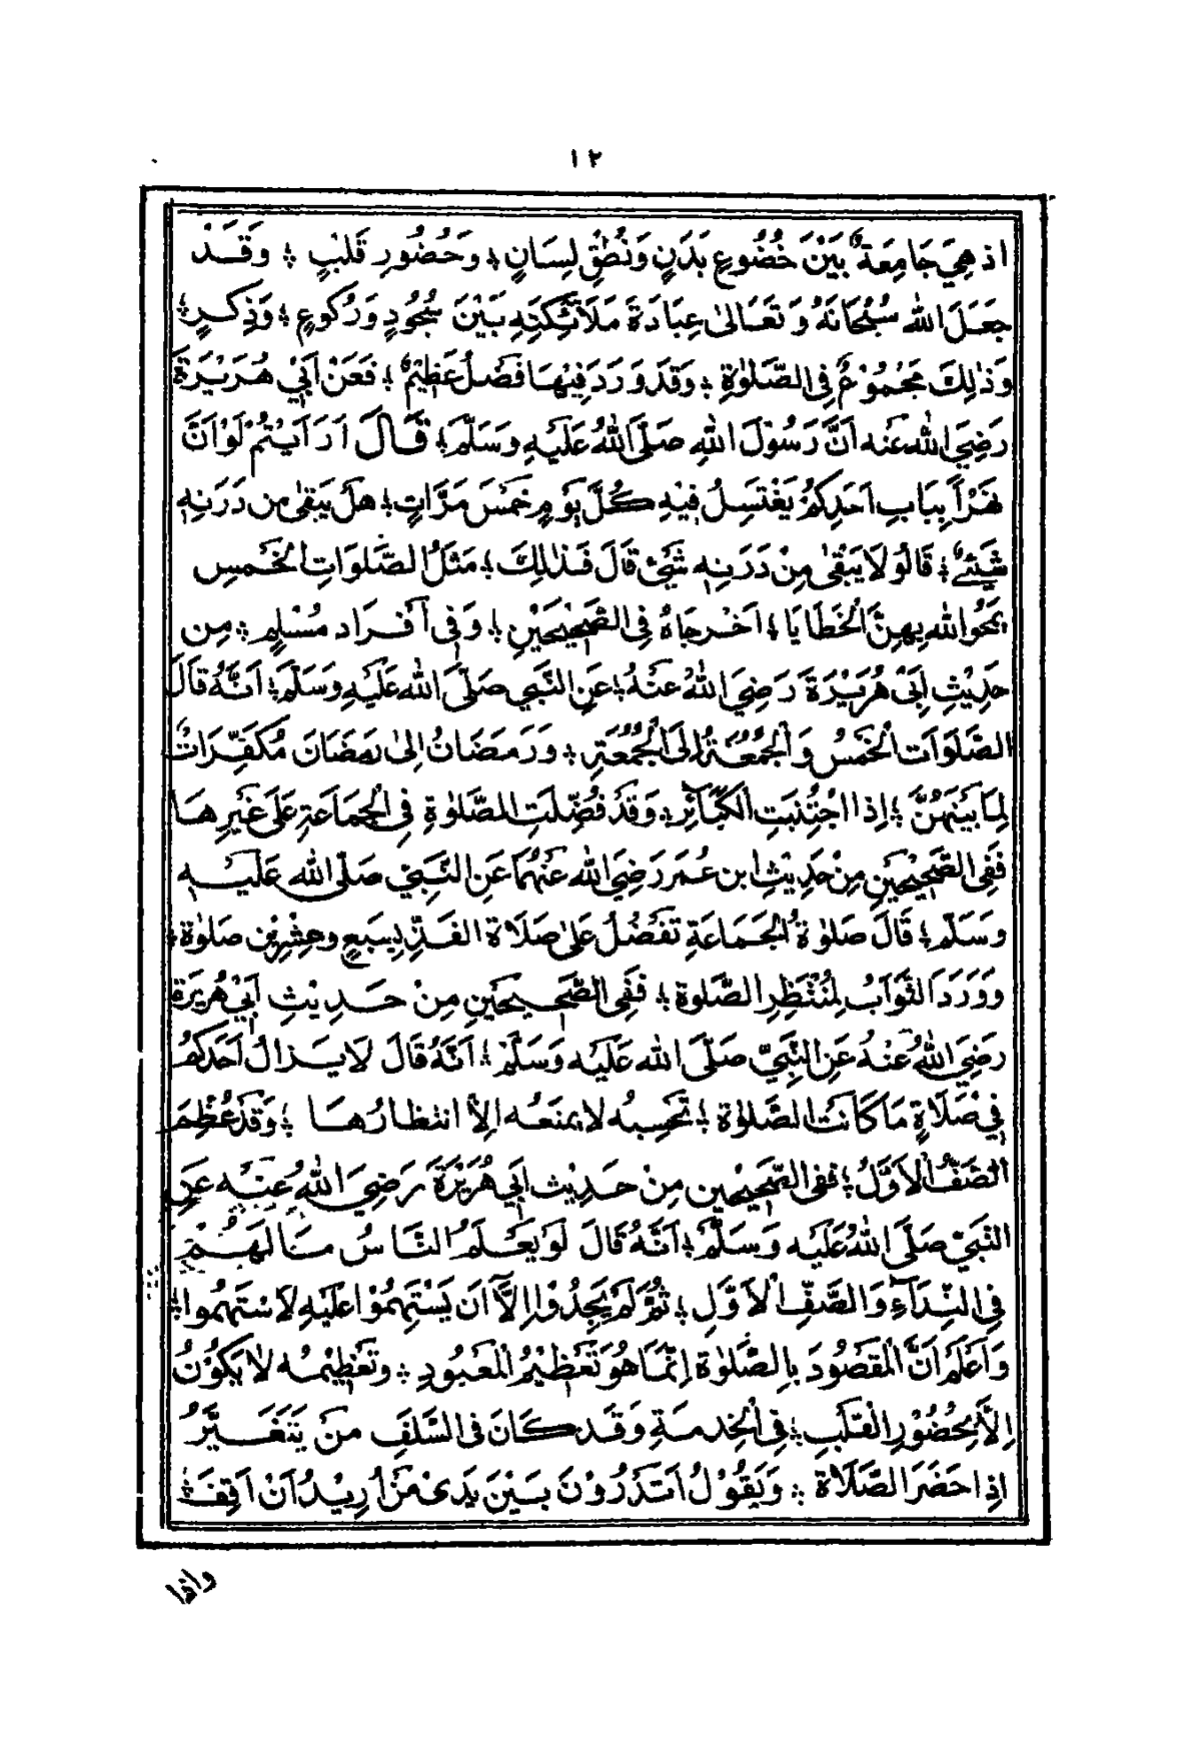 ١٢
اذ هِيَ جَامِعَةٌ بَيْنَ خُضُوعِ بَدَنٍ وَنُطْقِ لِسَانٍ ؛ وَحُضُورِ قَلْبٍ ؛ وَقَدْ
جَعَلَ الله سُبْحَانَهُ وَتَعَالىٰ عِبَادَةَ مَلَائِكَتِهِ بَيْنَ سُجُودٍ وَرُكُوعٍ ؛ وَذِكْرٍ ؛
وَذٰلِكَ مَجْمُوْعٌ فِي الصَّلٰوةِ ؛ وَقَدْ وَرَدَ فِيْهَا فَضْلٌ عَظِيْمٌ ؛ فَعَنْ اَبِيْ هُرَيْرَةَ
رَضِيَ اللهُ عَنْه اَنَّ رَسُوْلَ اللهِ صَلَّى اللهُ عَلَيْهِ وَسَلَّمَ ؛ قَالَ اَرَاَيْتُمْ لَوْ اَنَّ
نَهْرًا بِبَابِ اَحَدِكُمْ يَغْتَسِلُ فِيْهِ كُلَّ يَوْمٍ خَمْسَ مَرَّاتٍ ؛ هَلْ يَبْقٰى مِن دَرَنِهٖ
شَيْئٌ ؛ قَالُو لَا يَبْقٰى مِنْ دَرَنِهٖ شَيْئٌ قَالَ فَذٰلِكَ ؛ مَثَلُ الصَّلَوَاتِ الْخَمْسِ
يَمْحُو الله بِهِنَّ الْخَطَايَا ؛ اَخْرَجَاهُ فِي الصَّحِيْحَيْنِ ؛ وَفِي اَفْرَادِ مُسْلِمٍ ؛ مِن
حَدِيْثِ اَبِيْ هُرَيْرَةَ رَضِيَ اللهُ عَنْهُ ؛ عَنِ النَّبِي صَلَّى الله عَلَيْهِ وَسَلَّمَ ؛ اَنَّهُ قَالَ
الصَّلَوَات الْخَمْسُ وَالْجُمُعَةُ اِلَى الْجُمُعَةِ ؛ وَرَمَضَانُ اِلىٰ رَمَضَانَ مُكَفِّرَاتٌ
لِمَا بَيْنَهُنَّ ؛ اِذَا اجْتُنِبَتِ الْكَبَائِرُ ؛ وَقَدْ فُضِّلَتِ الصَّلٰوةِ فِي الْجَمَاعَةِ عَلٰى غَيْرِهَا
فَفِي الصَّحِيْحَيْنِ مِنْ حَدِيْثِ ابن عُمَرَ رَضِيَ الله عَنْهُمَا عَنِ النَّبِيّ صَلَّى الله عَلَيْهِ
وَسَلَّمَ ؛ قَالَ صَلٰوةُ الْجَمَاعَةِ تَفْضُلُ عَلىٰ صَلَاةِ الْفَذِّ بِسَبْعٍ وعِشْرِيْن صَلٰوةً ؛
وَوَرَدَ الثَّوَابُ لِمُنْتَظِرِ الصَّلٰوةِ ؛ فَفِي الصَّحِيحَيْنِ مِنْ حَدِيْثِ اَبِيْ هُرَيْرَةَ
رَضِيَ اللهُ عَنْهُ عَنِ النَّبِيِّ صَلَّى الله عَلَيْهِ وَسَلَّمَ ؛ اَنَّهُ قَالَ لَا يَزَالُ اَحَدُكُمْ
فِيْ صَلَاةٍ مَا كَانَتْ الصَّلٰوة ؛ تَحْبِسُه لا يمنعُه الا انتظارُهَا ؛ وَقَدْ عُظِّمَ
الصَّفُّ الْاَوَّلُ ؛ ففي الصَّحِيْحَيْنِ مِنْ حَدِيْث اَبِي هُرَيْرَةَ رَضِيَ اللهُ عَنْهُ عَنِ
النَّبِيِّ صَلَّى اللهُ عَلَيْه وَسَلَّمَ ؛ اَنَّهُ قَالَ لَوْ يَعْلَمُ النَّاسُ مَا لَهُمْ
فِي النِّدَآءِ وَالصَّفِّ الْاَوَّلِ ؛ ثُمَّ لَمْ يَجِدُوْا اِلَّآ اَن يَسْتَهِمُوْا عَلَيْهِ لَاسْتَهَمُوا ؛
وَاعْلَمْ اَنَّ الْمَقْصُودَ بِالصَّلٰوةِ اِنَّمَا هُوَ تَعْظِيْمُ الْمَعْبُودِ ؛ وتَعْظِيْمُه لَا يَكُوْنُ
اِلَّا بِحُضُوْرِ الْقَلْبِ ؛ فِي الْخِدمَةِ وَقَدْ كَانَ فِي السَّلَفِ مَنْ يَتَغَيَّرُ
اِذا حَضَرَ الصَّلَاةَ ؛ وَيَقُوْلُ اَتَدْرُوْنَ بَيْنَ يَدَىْ مَنْ اُرِيْدُ اَنْ اَقِفَ ؛